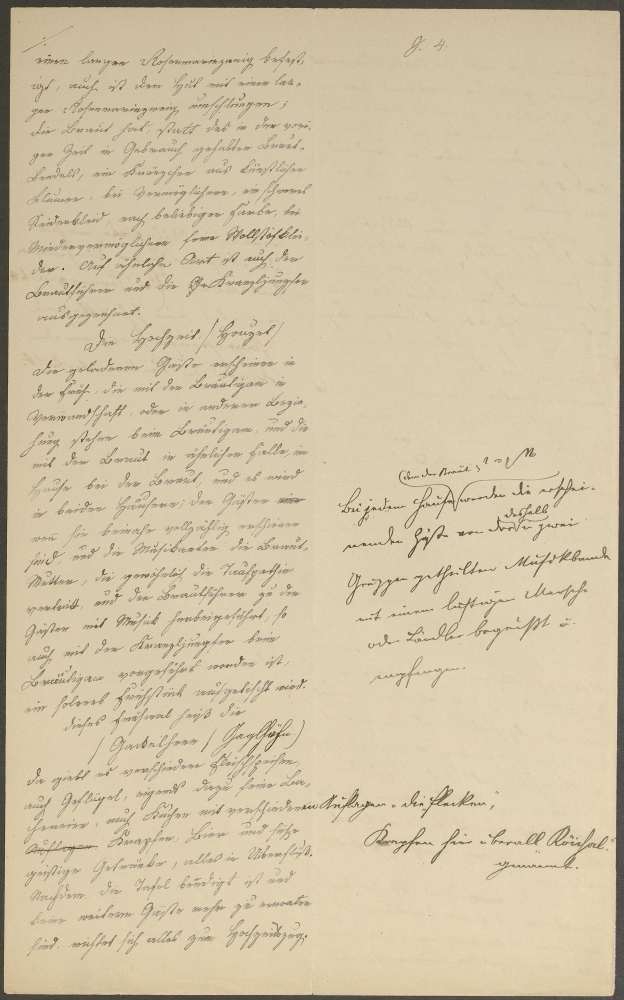 S. 4.
einen langen Rosmarinzweig befest,
igt, auch ist der Hut mit einem lan,
gen Rosmarinzweig umschlungen;
die Braut hat, statt des in der vori,
gen Zeit in Gebrauch gehabten Braut,
bendels, ein Kränzchen aus künstlichen
Blumen, bei Vermöglichern, ein schweres
Seidenkleid, nach beliebiger Farbe, bei
Mindervermöglichern feine Wollstofklei,
der. Auf ähnliche Art ist auch der
Brautführer und die Kranzljungfer
ausgezeichnet.
Die Hochzeit / Houzet /
Die geladenen Gäste erscheinen in
der Früh, die mit den Bräutigam in
Verwandschaft, oder in anderen Bezie,
hung stehen beim Bräutigam, und die
mit der Braut in ähnlichen Falle, im
Hause bei der Braut, und es wird
in beiden Häusern, der Gäste
wen sie beinahe vollzählig erschienen
sind, und die Musikanten die Braut,
Mutter, die gewöhnlich die Taufpathin
vertritt, und der Brautführer zu den
Gästen mit Musik herbeigeführt, so
auch mit der Kranzljungfer beim
Bräutigam vorgeführt worden ist,
ein solenes Frühstück aufgetischt wird.
dieses Frühmal heißt die
/ Gackelhenn / Gaglhöhn)
da giebt es verschiedene Fleischspeisen,
auch Geflügel, eigends dazu feine
auch Kuchen mit verschiedenen Auflagen „die Flecken",
Krapfen, Bier und süße
geistige Getränke, alles in Überfluß.
Nachdem die Tafel beendigt ist und
keine weiteren Gäste mehr zu erwarten
sind, richtet sich alles zum Hochzeitszug;
(dem der Braut u.
Bei jedem Hause werden die erschei-
nenden Gäste von der deshalb in zwei
Gruppen getheilten Musikbande
mit einem lustigen Marsche
oder Ländler begrüßt u.
empfangen.
Krapfen hier überall
genannt.